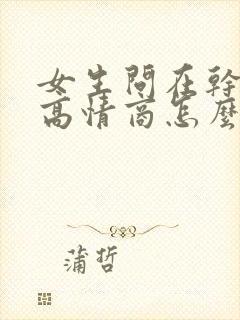 女生問在幹
高情商怎麼
蒲哲